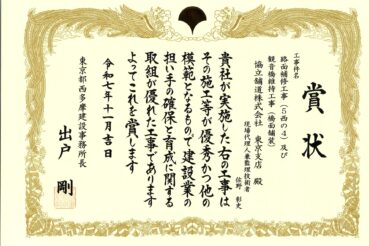 賞状
工事件名
路面補修工事（5西の4）及び
観音橋維持工事（橋面舗装）
協立舗道株会社 東京支店 殿
現場代理人兼監理技術者
佐野 彰史
貴社が実施した右の工事は
その施工等が優秀かつ他の
模範となるもので建設業の
担い手の確保と育成に関する
取組が優れた工事であります
よってこれを賞します
令和七年十一月吉日
東京都西多摩建設事務所長
出戸 剛